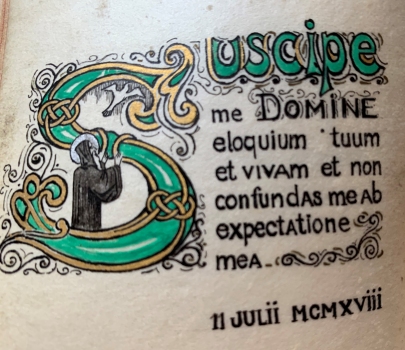 Suscipe
me DOMINE
eloquium tuum
et vivam et non
confundas me ab
expectatione
mea
11 JULII MCMXVIII